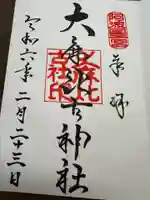 奉拝
大麻比古神社
令和六年
二月二十三日